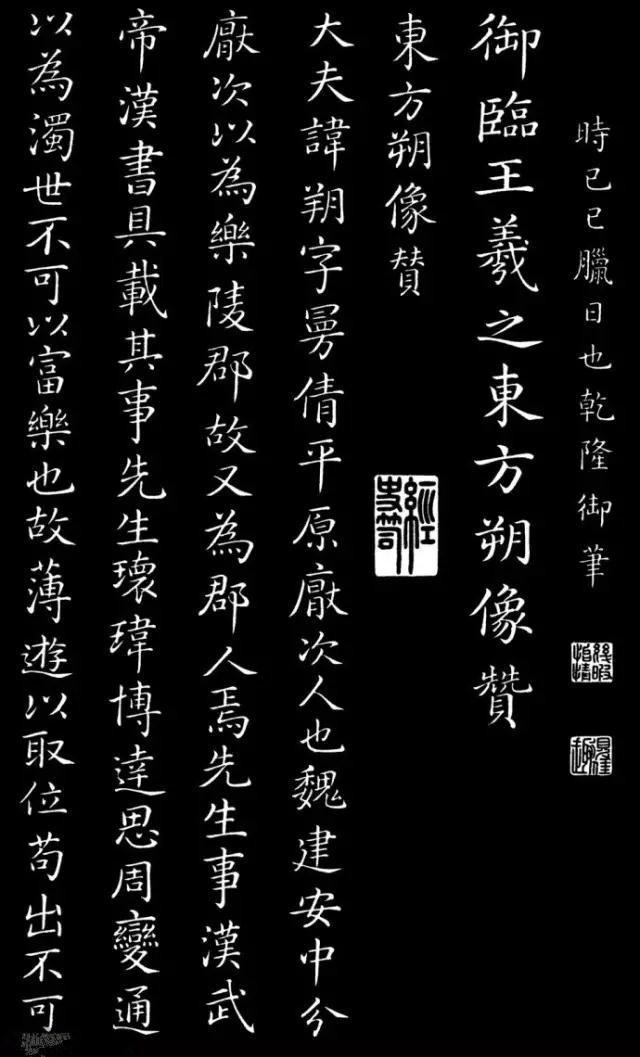 時己巳臘日也乾隆御筆
幾暇怡情
得佳趣
御臨王羲之東方朔像贊
東方朔像賛
大夫諱朔字曼倩平原厭次人也魏建安中分
厭次以為樂陵郡故又為郡人焉先生事漢武
帝漢書具載其事先生瓌瑋博達思周變通
以為濁世不可以富樂也故薄遊以取位苟出不可